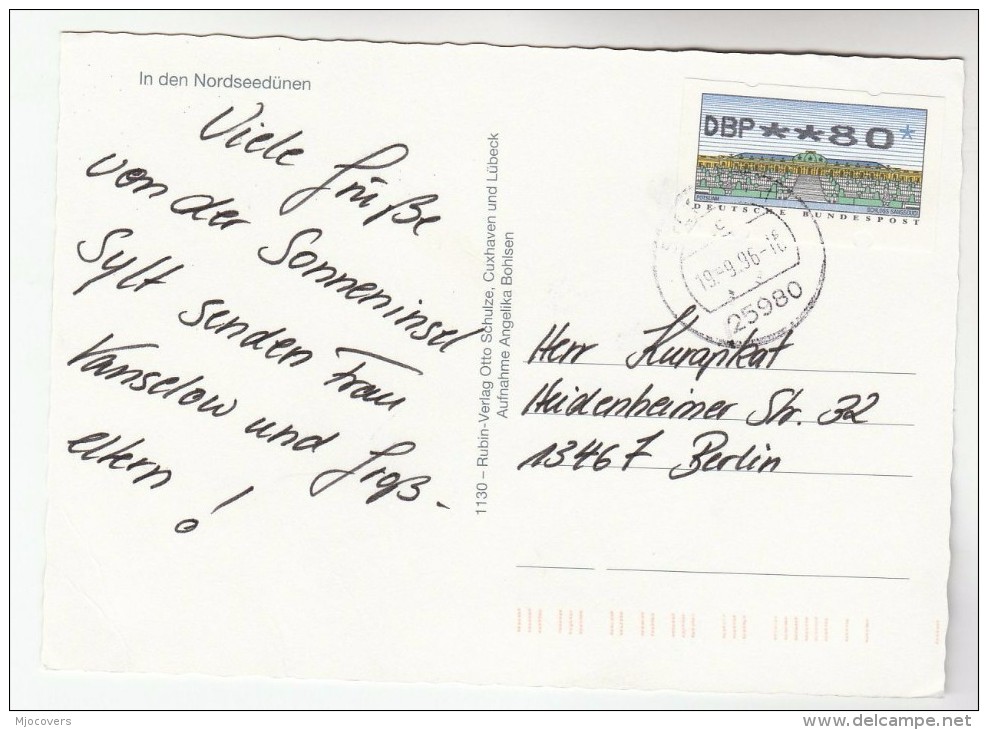 In den Nordseedünen
Viele Grüße
von der Sonneninsel
Sylt senden Frau
Vanselow und Groß-
eltern!
1130 – Rubin-Verlag Otto Schulze, Cuxhaven und Lübeck
Aufnahme Angelika Bohlsen
DBP**80*
POTSDAM SCHLOSS SANSSOUCI
DEUTSCHE BUNDESPOST
19.-9.96-18
25980
Herr Kurapkat
Heidenheimer Str. 32
13467 Berlin
Mjocovers
www.delcampe.net